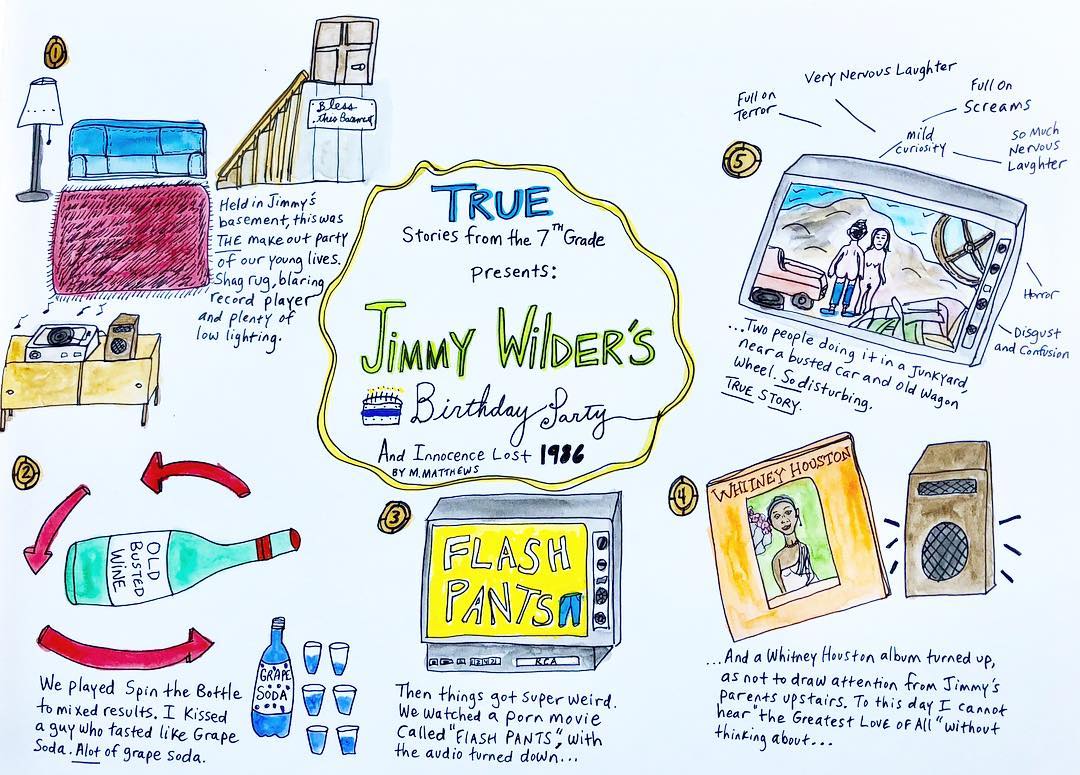 TRUE
Stories from the 7th Grade
presents:
Jimmy Wilder's
Birthday Party
And Innocence Lost 1986
BY M. MATTHEWS
1
Bless
this Basement
Held in Jimmy's
basement, this was
THE make out party
of our young lives.
Shag rug, blaring
record player
and plenty of
low lighting.
2
OLD
BUSTED
WINE
GRAPE
SODA
We played Spin the Bottle
to mixed results. I Kissed
a guy who tasted like Grape
Soda. Alot of grape soda.
3
FLASH
PANTS
RCA
Then things got super weird.
We watched a porn movie
called "FLASH PANTS", with
the audio turned down...
4
WHITNEY HOUSTON
...And a Whitney Houston album turned up,
as not to draw attention from Jimmy's
parents upstairs. To this day I cannot
hear "the Greatest Love of All" without
thinking about...
5
Full on
Terror
Very Nervous Laughter
mild
curiosity
Full on
Screams
So Much
Nervous
Laughter
Horror
Disgust
and Confusion
...Two people doing it in a Junkyard,
near a busted car and old wagon
wheel. So disturbing.
TRUE STORY.